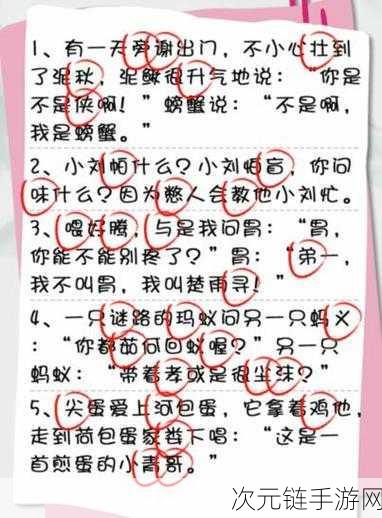 1、有一天旁谢出门，不小心壮到
了泥秋，泥鳅很升气地说：“你是
不是侠啊！”螃蟹说：“不是啊，
我是螃蟹。”
2、小刘帕什么？小刘怕盲，你问
味什么？因为憨人会教他小刘忙。
3、喂好腾，与是我问胃：“胃，
你能不能别疼了？”胃：“弟一，
我不叫胃，我叫楚雨寻！”
4、一只谜路的玛蚁问另一只蚂义
：“你都茄何回蚁喔？”另一只
蚂蚁：“带着孝或是很尘沫？”
5、尖蛋爱上河包蛋，它拿着鸡他，
走到荷包蛋家娄下唱：“这是一
首煎蛋的小青哥。”
次元链手游网